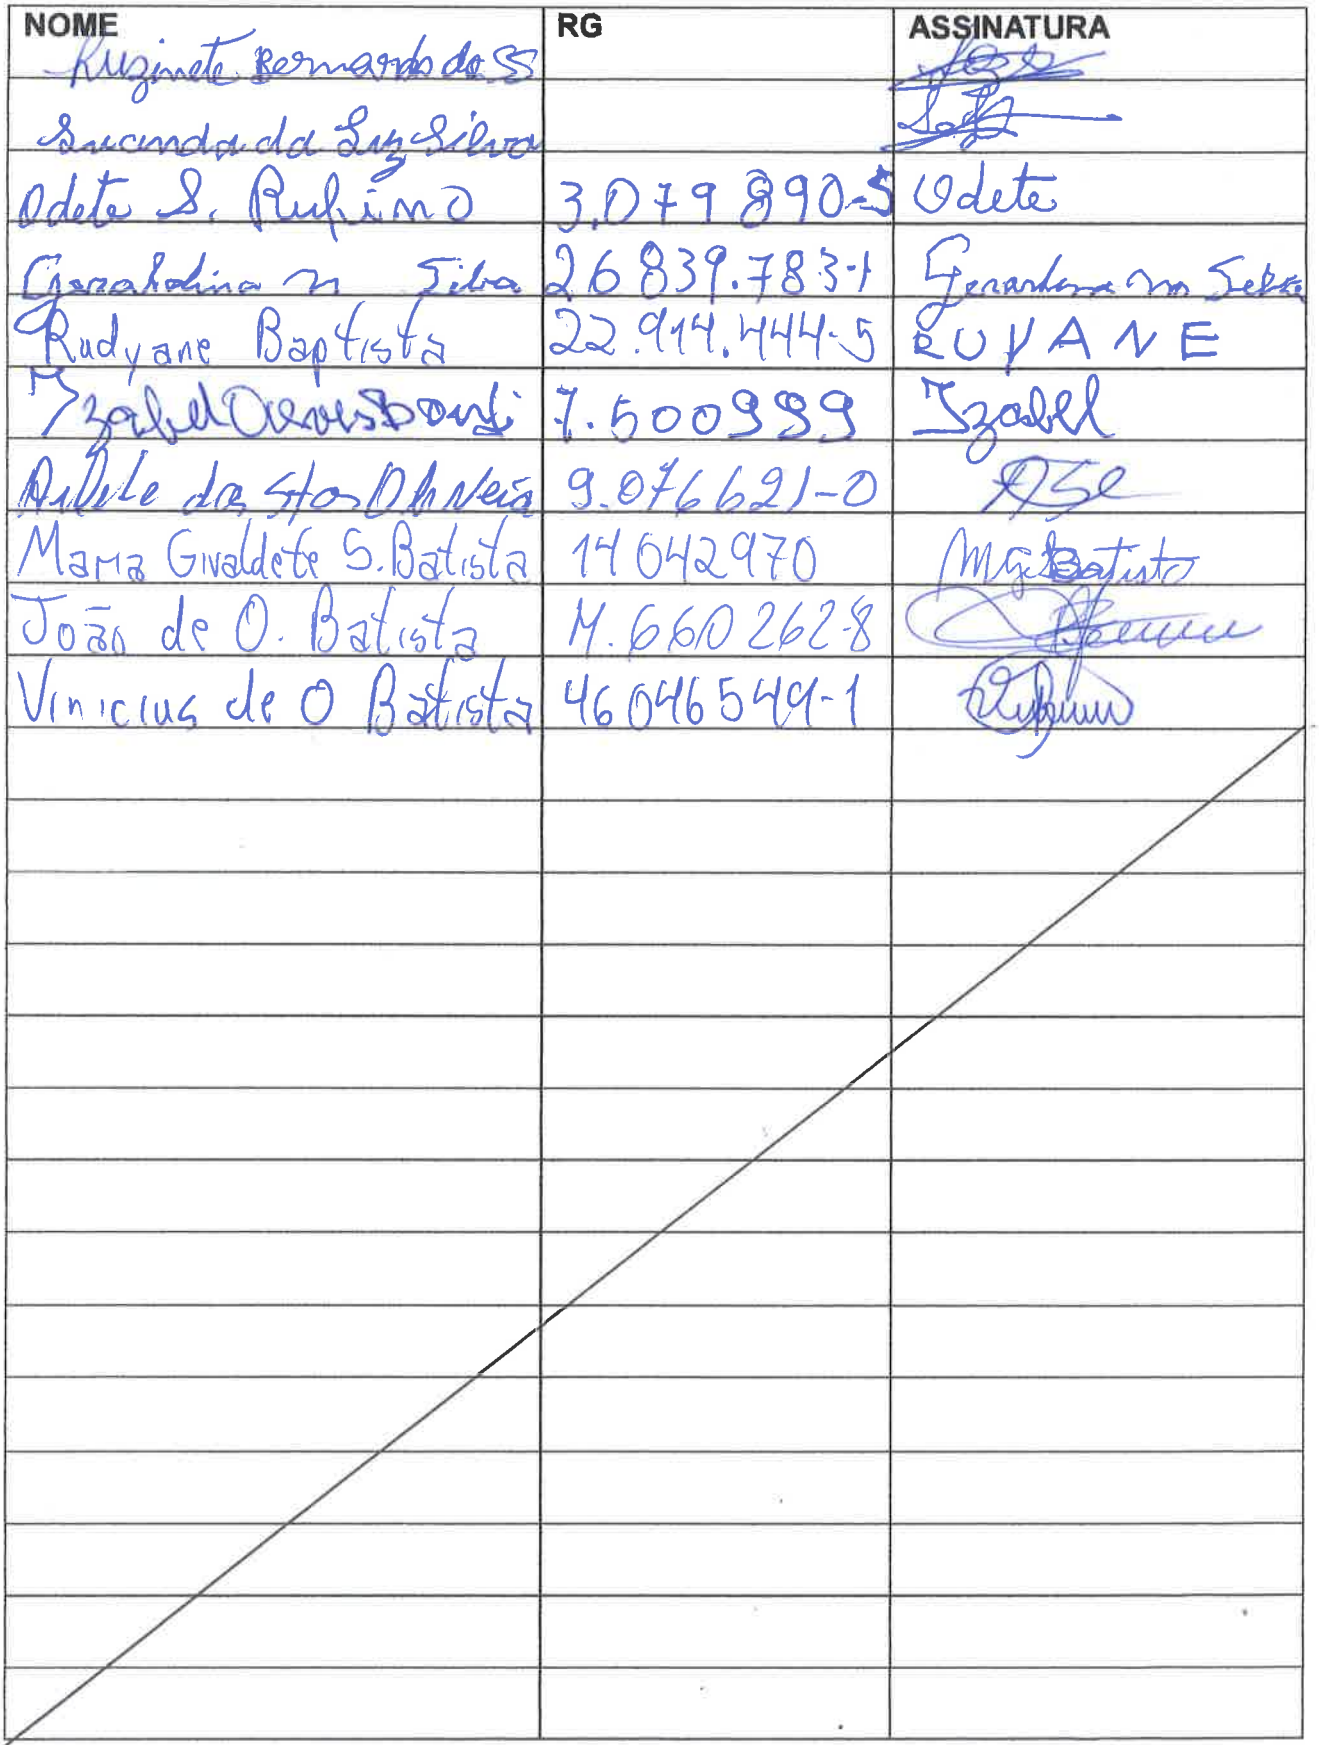 NOME RG ASSINATURA
Luzinete Bernardo do SS
da Luz Silva
Odete S. Rufino 3.079 890-5 Odete
Silva 26 839.783-1
Rudyane Baptista 22.914.444-5 RUYANE
Izabel 7.500999 Izabel
dos Stos Oliveia 9.076621-0
Maria Givaldete S. Batista 14042970 MGSBatista
João de O. Batista 6602628
Vinicius de O Batista 46046549-1